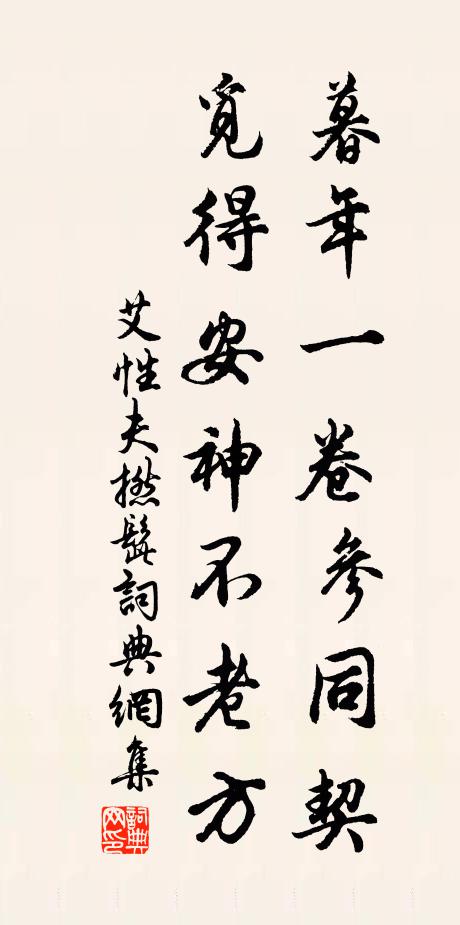 暮年一卷參同契
覓得安神不老方
艾性夫撚髭詞典網集
詞典網印